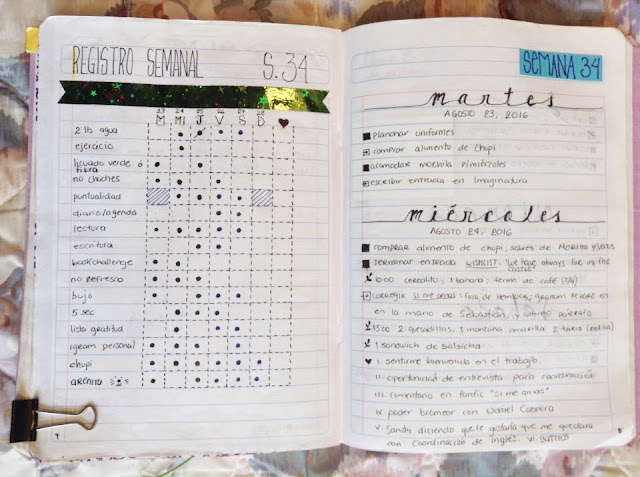 REGISTRO SEMANAL S. 34
23 24 25 26 27 28
M MI J V S D
2 lts agua
ejercicio
licuado verde ó
fibra
no choches
puntualidad
diario/agenda
lectura
escritura
bookchallenge
no refresco
bujo
5 sec
lista gratitud
igram personal
chupi
arenita
4
SEMANA 34
martes
AGOSTO 23, 2016
planchar uniformes
comprar alimento de Chupi
acomodar mochila p/miércoles
escribir entrada en Imaginatura
miércoles
AGOSTO 24, 2016
comprar alimento de chupi, sobres de Morita y
terminar entrada wishlist: "We have always live in the
castle"
10:00 cerealito, 1 banana, termo de café
corregir si me amas: en
en la mano de Sebastián, y último párrafo
13:00 2 quesadillas, 1 manzana amarilla, 2
1 sandwich de salsicha
I. sentirme bienvenida en el trabajo
II. oportunidad de entrevista para coordinación
III. comentario en fanfic "Si me amas"
IV. poder bromear con Daniel Cabrera
V. Sandy diciendo que le gustaría que me quedara
con Coordinación de inglés. VI. gatitos
5